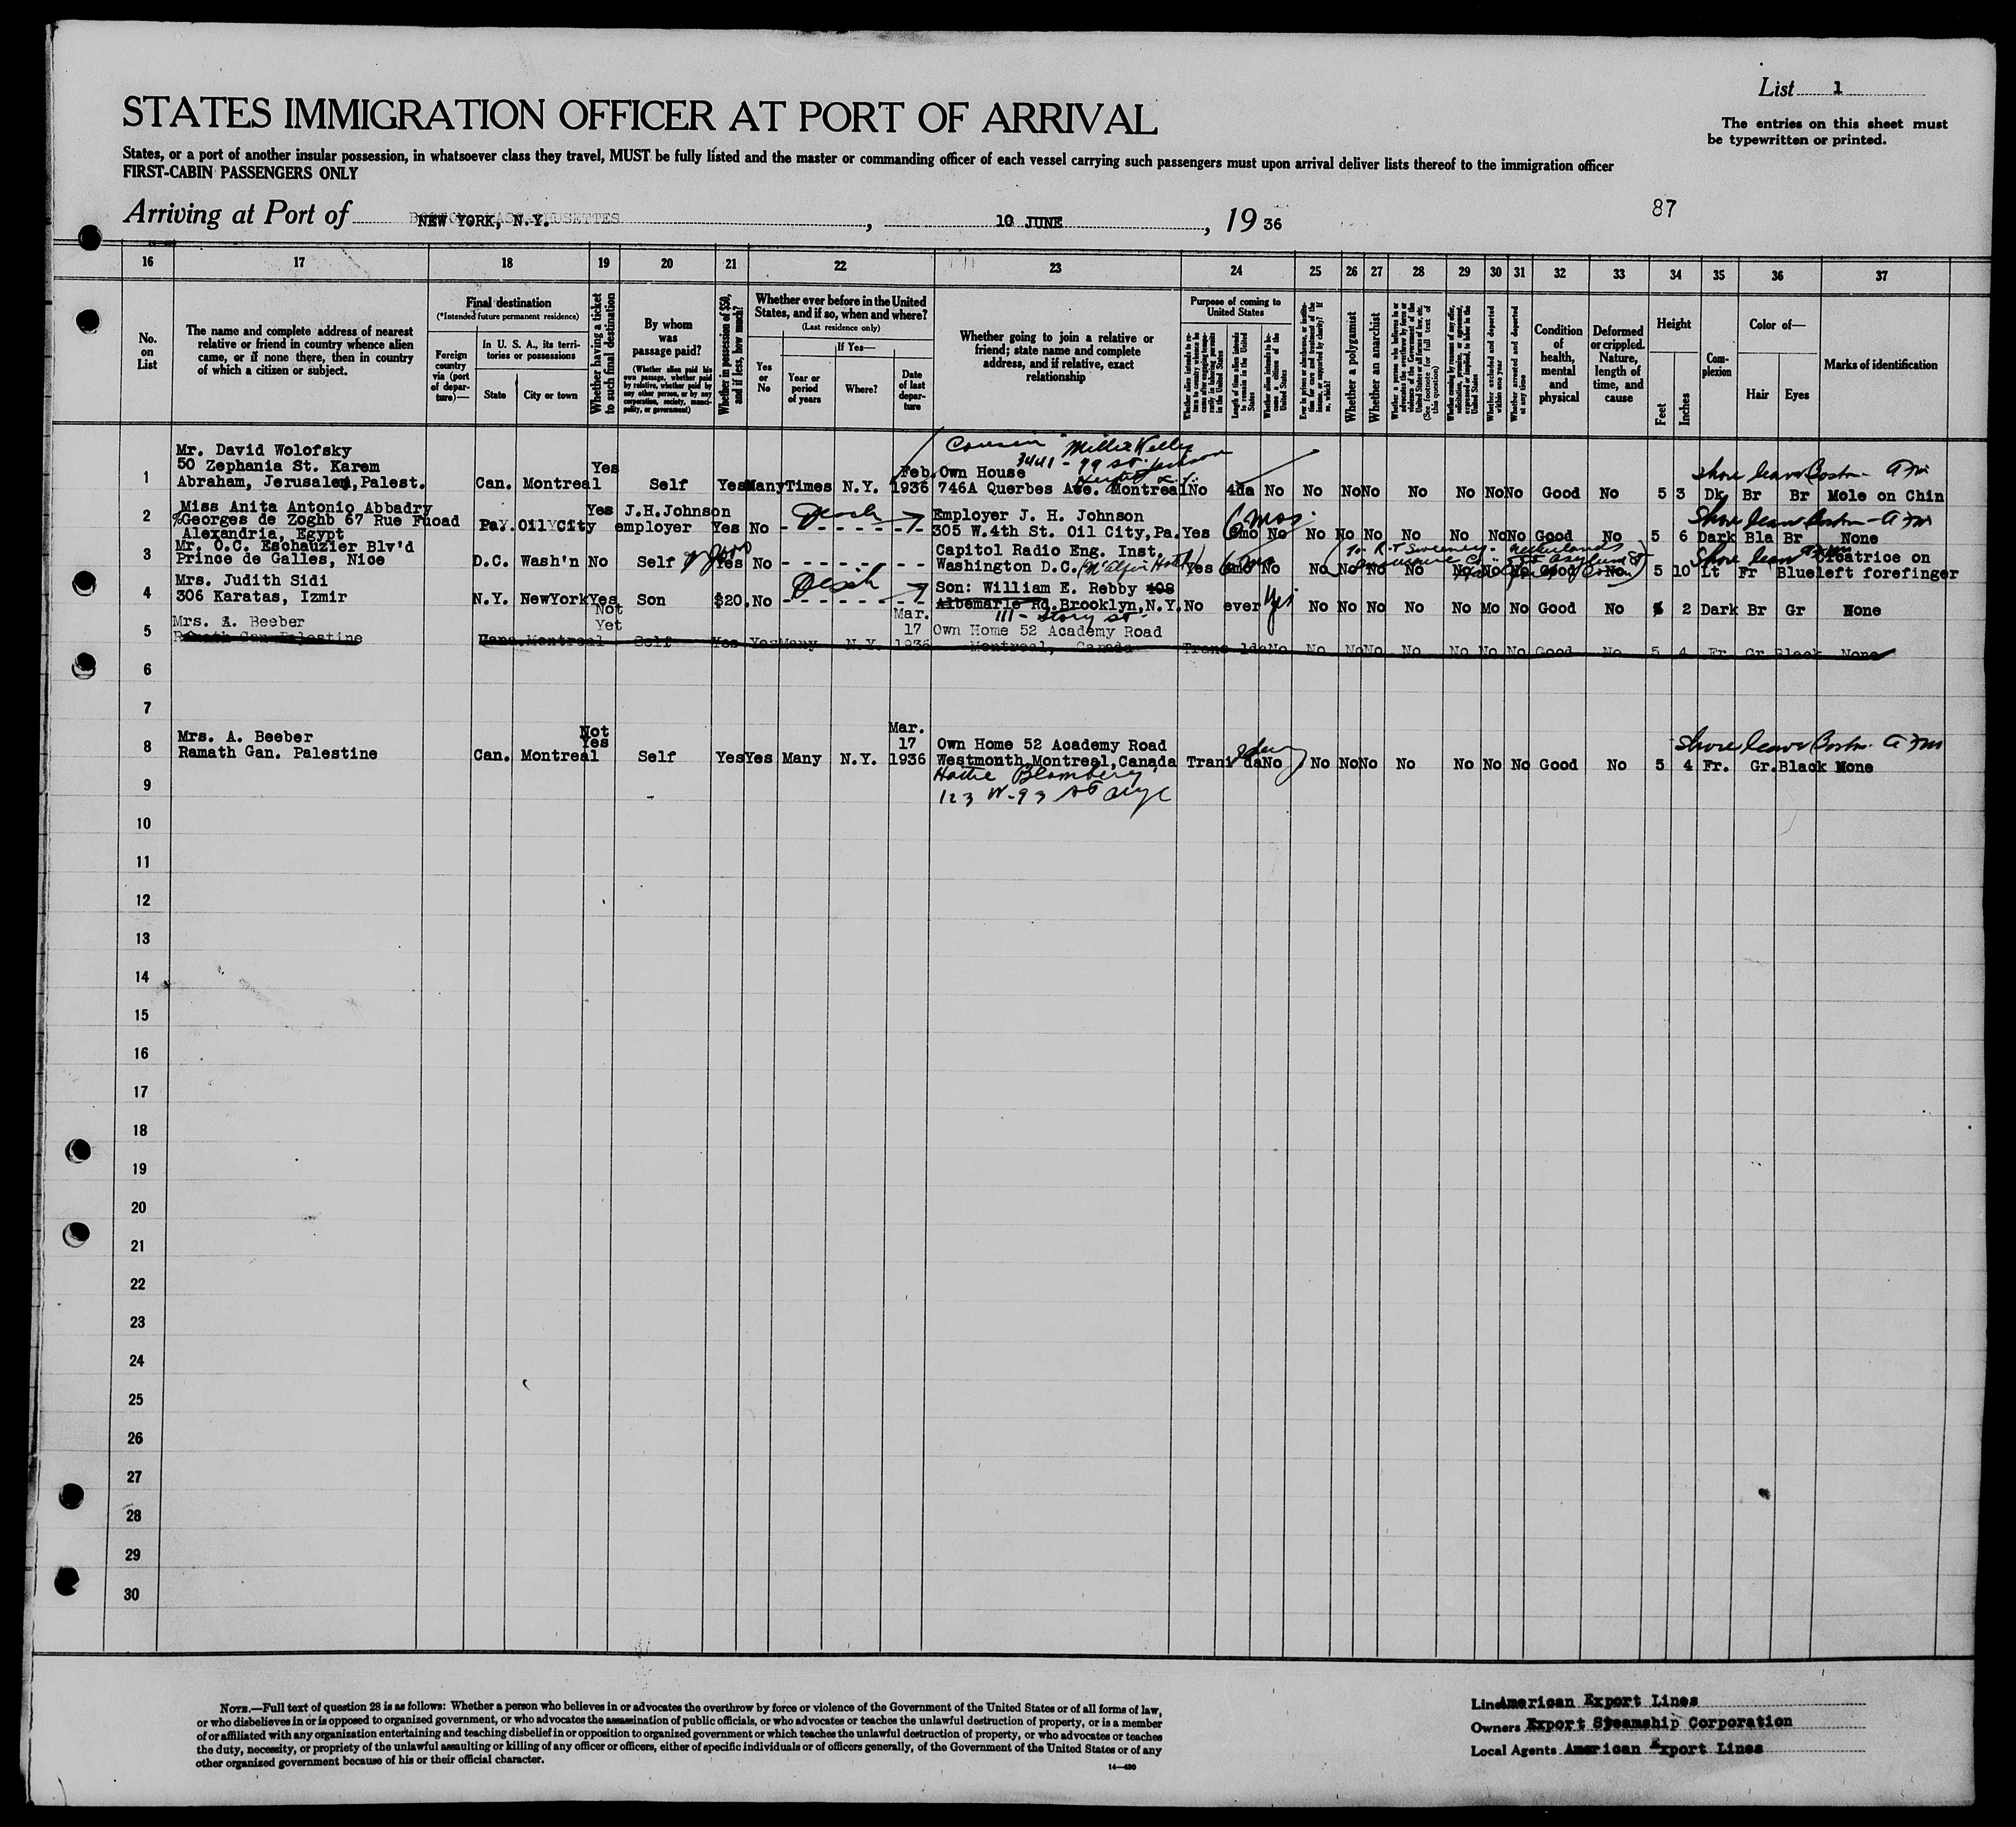 List 1
STATES IMMIGRATION OFFICER AT PORT OF ARRIVAL
The entries on this sheet must
be typewritten or printed.
States, or a port of another insular possession, in whatsoever class they travel, MUST be fully listed and the master or commanding officer of each vessel carrying such passengers must upon arrival deliver lists thereof to the immigration officer
FIRST-CABIN PASSENGERS ONLY
Arriving at Port of NEW YORK, N.Y., 10 JUNE, 19 36
87
16 17 18 19 20 21 22 23 24 25 26 27 28 29 30 31 32 33 34 35 36 37
No. on List
The name and complete address of nearest
relative or friend in country whence alien
came, or if none there, then in country
of which a citizen or subject.
Final destination
(*Intended future permanent residence)
Foreign country via (port of departure)—
In U. S. A., its territories or possessions
State
City or town
Whether having a ticket to such final destination
By whom was passage paid?
(Whether alien paid his own passage, whether paid by relative, whether paid by any other person, or by any corporation, society, municipality, or government)
Whether in possession of $50, and if less, how much?
Whether ever before in the United
States, and if so, when and where?
(Last residence only)
Yes or No
If Yes—
Year or period of years
Where?
Date of last departure
Whether going to join a relative or
friend; state name and complete
address, and if relative, exact
relationship
Purpose of coming to United States
Whether alien intends to return to country whence he came after engaging temporarily in laboring pursuits in the United States
Length of time alien intends to remain in the United States
Whether alien intends to become a citizen of the United States
Ever in prison or almshouse, or institution for care and treatment of the insane, or supported by charity? If so, which?
Whether a polygamist
Whether an anarchist
Whether a person who believes in or advocates the overthrow by force or violence of the Government of the United States or all forms of law, etc. (See footnote for full text of this question)
Whether coming by reason of any offer, solicitation, promise, or agreement, expressed or implied, to labor in the United States
Whether excluded and deported within one year
Whether arrested and deported at any time
Condition of health, mental and physical
Deformed or crippled. Nature, length of time, and cause
Height
Feet
Inches
Complexion
Color of—
Hair
Eyes
Marks of identification
Cousin Millie Kelly
3441 - 79 St. Jackson
Mr. David Wolofsky
50 Zephania St. Karem Yes Feb. Own House Shore leave Boston
1 Abraham, Jerusalem, Palest. Can. Montreal Self Yes Many Times N.Y. 1936 746A Querbes Ave. Montreal No 4da No No No No No No No No Good No 5 3 Dk Br Br Mole on Chin
Miss Anita Antonio Abbadry Yes J.H.Johnson 6 mos. Shore leave Boston
2 %Georges de Zoghb 67 Rue Fuoad Pa. Oil City employer Yes No Employer J. H. Johnson
Alexandria, Egypt 305 W.4th St. Oil City, Pa. Yes 6mo No No No No No No No No Good No 5 6 Dark Bla Br None
3 Mr. O.C. Eschauzier Blv'd Capitol Radio Eng. Inst. To R. T. Sweeney - Netherlands Shore leave Cicatrice on
Prince de Galles, Nice D.C. Wash'n No Self Yes No Washington D.C. (McAlpin Hotel) Yes 6mo No No No No No No No No Good No 5 10 Lt Fr Blue left forefinger
4 Mrs. Judith Sidi Son: William E. Rebby 408
306 Karatas, Izmir N.Y. NewYork Yes Son $20. No Albemarle Rd. Brooklyn, N.Y. No ever Yes No No No No No Mo No Good No 5 2 Dark Br Gr None
111 - Story St.
5 Mrs. A. Beeber Not Yet Mar. 17 Own Home 52 Academy Road
Ramath Gan. Palestine Cana. Montreal Self Yes Yes Many N.Y. 1936 Montreal, Canada Trans 1da No No No No No No No No Good No 5 4 Fr Gr Black None
6
7
8 Mrs. A. Beeber Not Yes Mar. 17 Own Home 52 Academy Road Shore leave Boston
Ramath Gan. Palestine Can. Montreal Self Yes Yes Many N.Y. 1936 Westmonth, Montreal, Canada Tran da No No No No No No No No Good No 5 4 Fr. Gr. Black None
9 Hattie Blomberg
123 W-93 St NYC
10
11
12
13
14
15
16
17
18
19
20
21
22
23
24
25
26
27
28
29
30
NOTE.—Full text of question 28 is as follows: Whether a person who believes in or advocates the overthrow by force or violence of the Government of the United States or of all forms of law,
or who disbelieves in or is opposed to organized government, or who advocates the assassination of public officials, or who advocates or teaches the unlawful destruction of property, or is a member
of or affiliated with any organization entertaining and teaching disbelief in or opposition to organized government or which teaches the unlawful destruction of property, or who advocates or teaches
the duty, necessity, or propriety of the unlawful assaulting or killing of any officer or officers, either of specific individuals or of officers generally, of the Government of the United States or of any
other organized government because of his or their official character.
14—430
Line American Export Lines
Owners Export Steamship Corporation
Local Agents American Export Lines